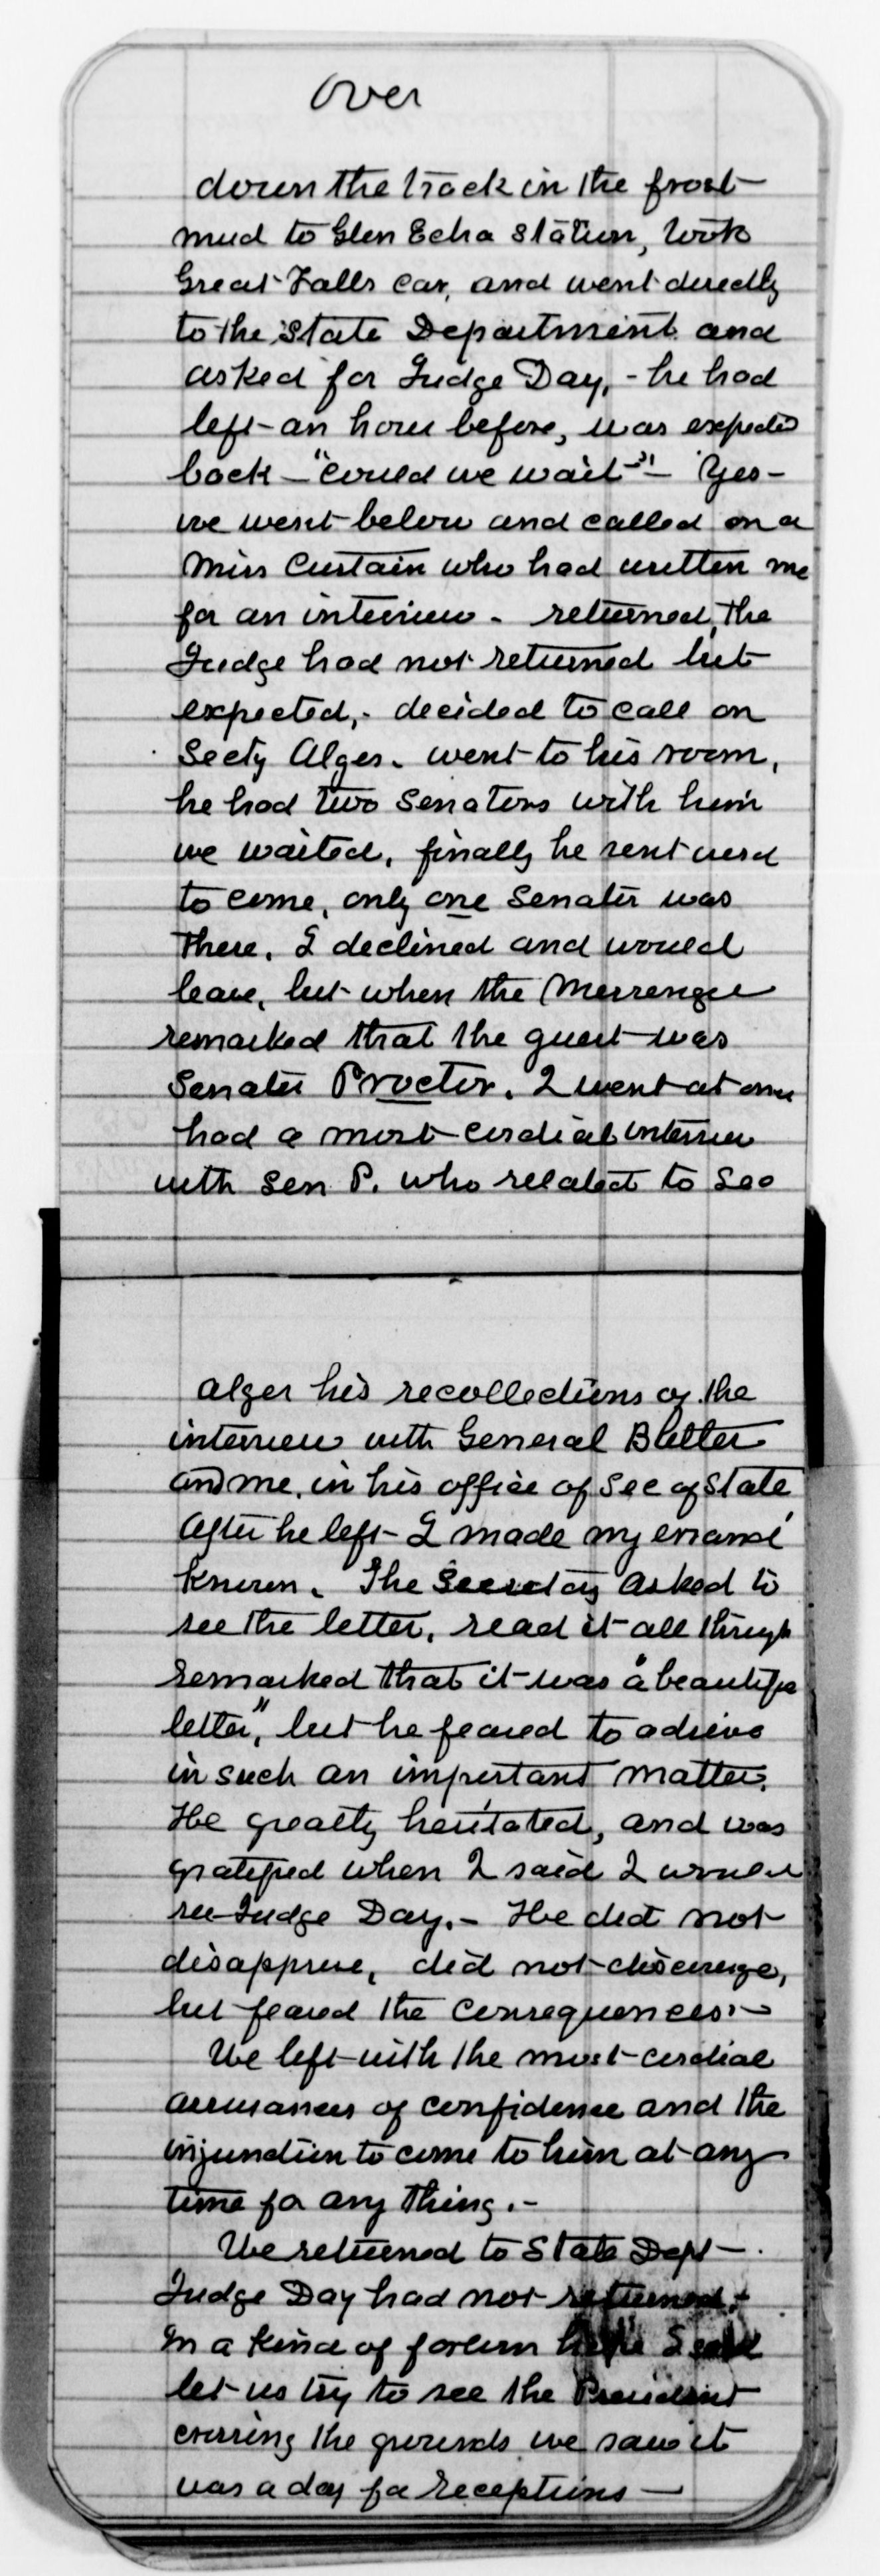 Over
down the track in the frost
mud to Glen Echo station, took
Great Falls car, and went directly
to the State Department and
asked for Judge Day, - he had
left an hour before, was expected
back - "could we wait" - Yes -
we went below and called on a
Miss Curtain who had written me
for an interview - returned, the
Judge had not returned but
expected, - decided to call on
Secty Alger. went to his room,
he had two Senators with him
we waited, finally he sent word
to come, only one Senator was
there. I declined and would
leave, but when the Messenger
remarked that the guest was
Senator Proctor. I went at once
had a most cordial interview
with Sen P. who related to Sec
Alger his recollections of the
interview with General Butler
and me, in his office of Sec of State
After he left I made my errand
known. The Secretary asked to
see the letter, read it all through
remarked that it was "a beautiful
letter", but he feared to advise
in such an important matter.
He greatly hesitated, and was
gratified when I said I would
see Judge Day. - He did not
disapprove, did not discourage,
but feared the consequences. -
We left with the most cordial
assurances of confidence and the
injunction to come to him at any
time for any thing. -
We returned to State Dept -
Judge Day had not returned. -
In a kind of forlorn hope I said
let us try to see the President
crossing the grounds we saw it
was a day for receptions -